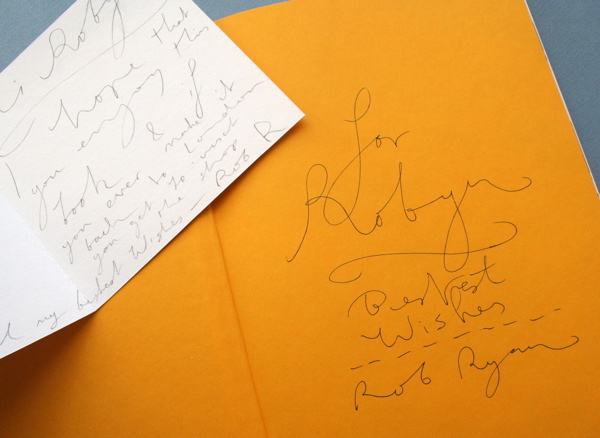 i Roby
I hope that
you enjoy this
book & if
you ever make it
back to London
you get to visit
the shop
my bestest Wishes — Rob R
for
Robyn
Bestest
Wishes
Rob Ryan